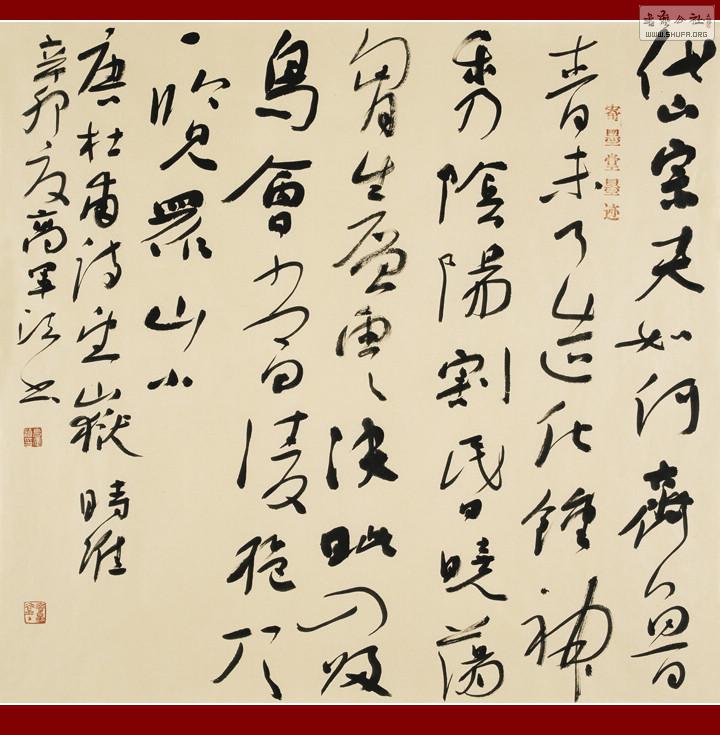 书法公社
WWW.SHUFA.ORG
岱宗夫如何齊魯
寄墨堂墨迹
青未了造化鍾神
秀陰陽割昏曉蕩
胷生層雲決眦入歸
鳥會當凌絕頂
一覽眾山小
唐杜甫詩望嶽 時維
辛卯夏高軍法書